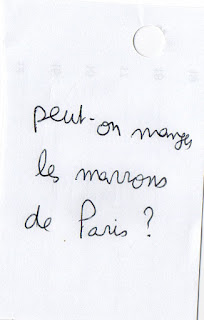 peut-on manger
les marrons
de Paris ?